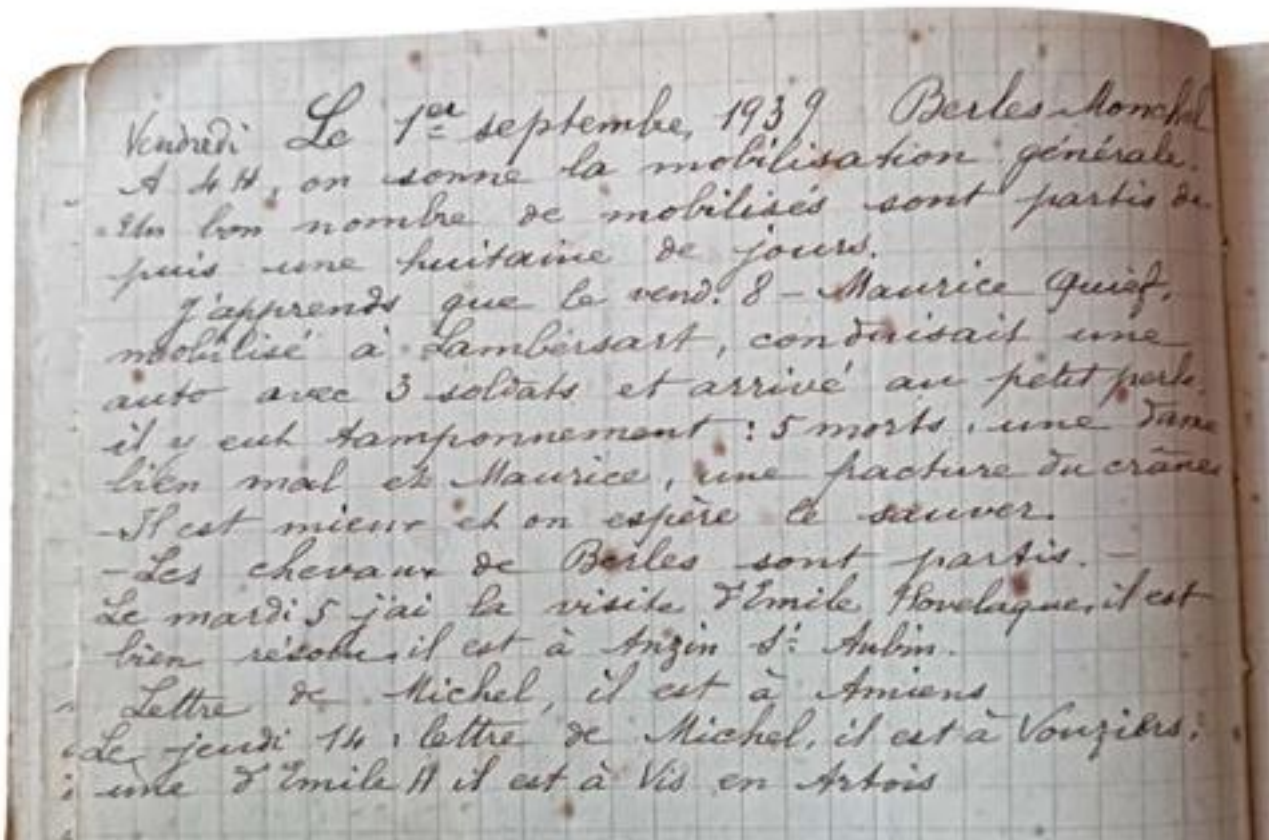 Vendredi Le 1er septembre, 1939 Berles-Monchel
A 4 H, on sonne la mobilisation générale.
Un bon nombre de mobilisés sont partis de
puis une huitaine de jours.
J'apprends que le vend. 8 - Maurice Quief,
mobilisé à Lambersart, conduisait une
auto avec 3 soldats et arrivé au petit
il y eut tamponnement : 5 morts, une dame
bien mal et Maurice, une facture du crâne
- Il est mieux et on espère le sauver.
- Les chevaux de Berles sont partis. -
Le mardi 5 j'ai la visite d'Emile Hovelaque, il est
bien résolu, il est à Anzin St Aubin.
Lettre de Michel, il est à Amiens
Le jeudi 14 : lettre de Michel, il est à Vouziers ;
une d'Emile H il est à Vis en Artois